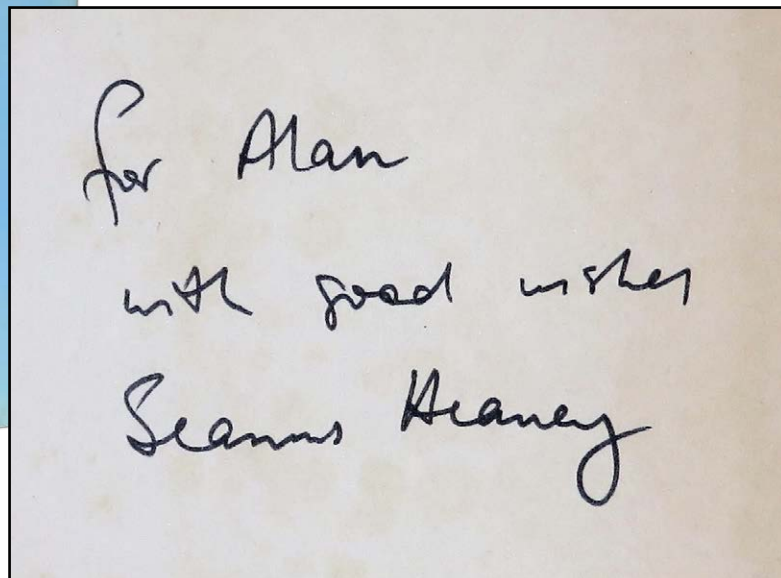 for Alan
with good wishes
Seamus Heaney